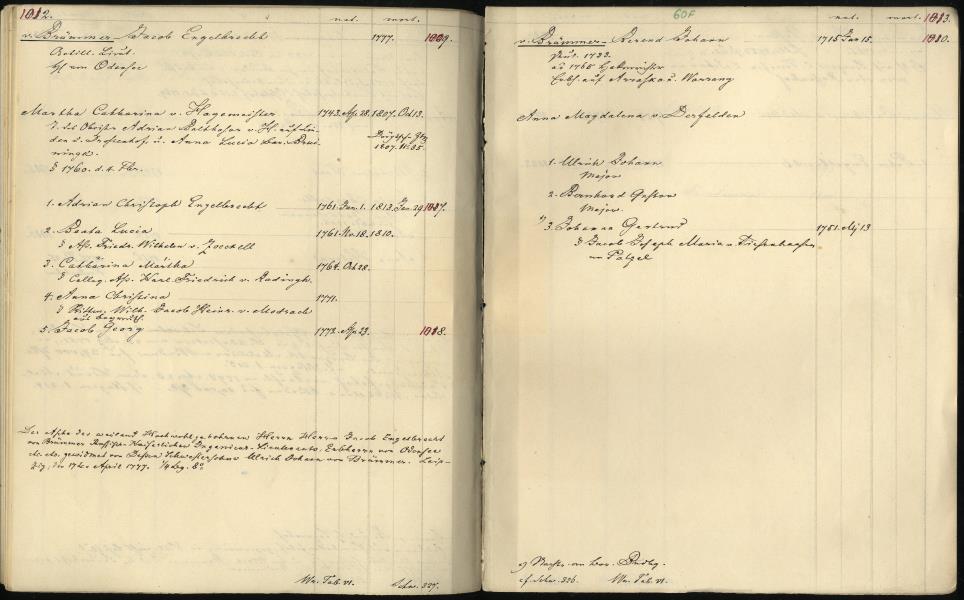 1012.
nat. mort.
v. Brümmer Jacob Engelbrecht 1777. 1009.
Artill. Lieut.
Hf von Odensee
Martha Catharina v. Hagemeister 1743. Ap. 28. 1807. Oct 13.
T. des Obristn Adrian Balthasar v. H. auf
den u. Drostenhof, u. Anna Lucia
ningk. 1807.
§ 1760. d. 4. Fbr.
1. Adrian Christoph Engelbrecht 1761. Jan. 1. 1813. Jan. 29 1017.
2. Beata Lucia 1761. No. 18. 1810.
§ Ass. Friedr. Wilhelm v. Zoeckell
3. Catharina Martha 1764. Oct 28.
§ Colleg. Ass. Karl Friedrich v. Radingh.
4. Anna Christina 1771.
§ Wilh. Jacob Heinr. v. Modrach
5. Jacob Georg 1773. Ap. 23. 1018.
Der Asche des weiland Hochwohlgebohrnen Herrn Herrn Jacob Engelbrecht
von Brümmer Russisch-Kaiserlichen Ingenieur-Lieutenants, Erbherrn von Odensee
etc. etc. gewidmet von Dessen Schwestersohne Ulrich Johann von Brümmer. Leip-
zig, den 17ten April 1777. 8°
Tab. VI. Schw. 327.
60F
nat. mort. 1013.
v. Brümmer Berend Johann 1715 Jan 15. 1010.
1733.
1765
Erbh. auf
Anna Magdalena v. Derfelden
1. Ulrich Johann
Major
2. Bernhard Gustav
Major.
3. Johanna Gertrud 1751. Mz 13
§ Jacob Joseph Maria v. Tiesenhausen
Palzel
cf. Schw. 326. Tab. VI.